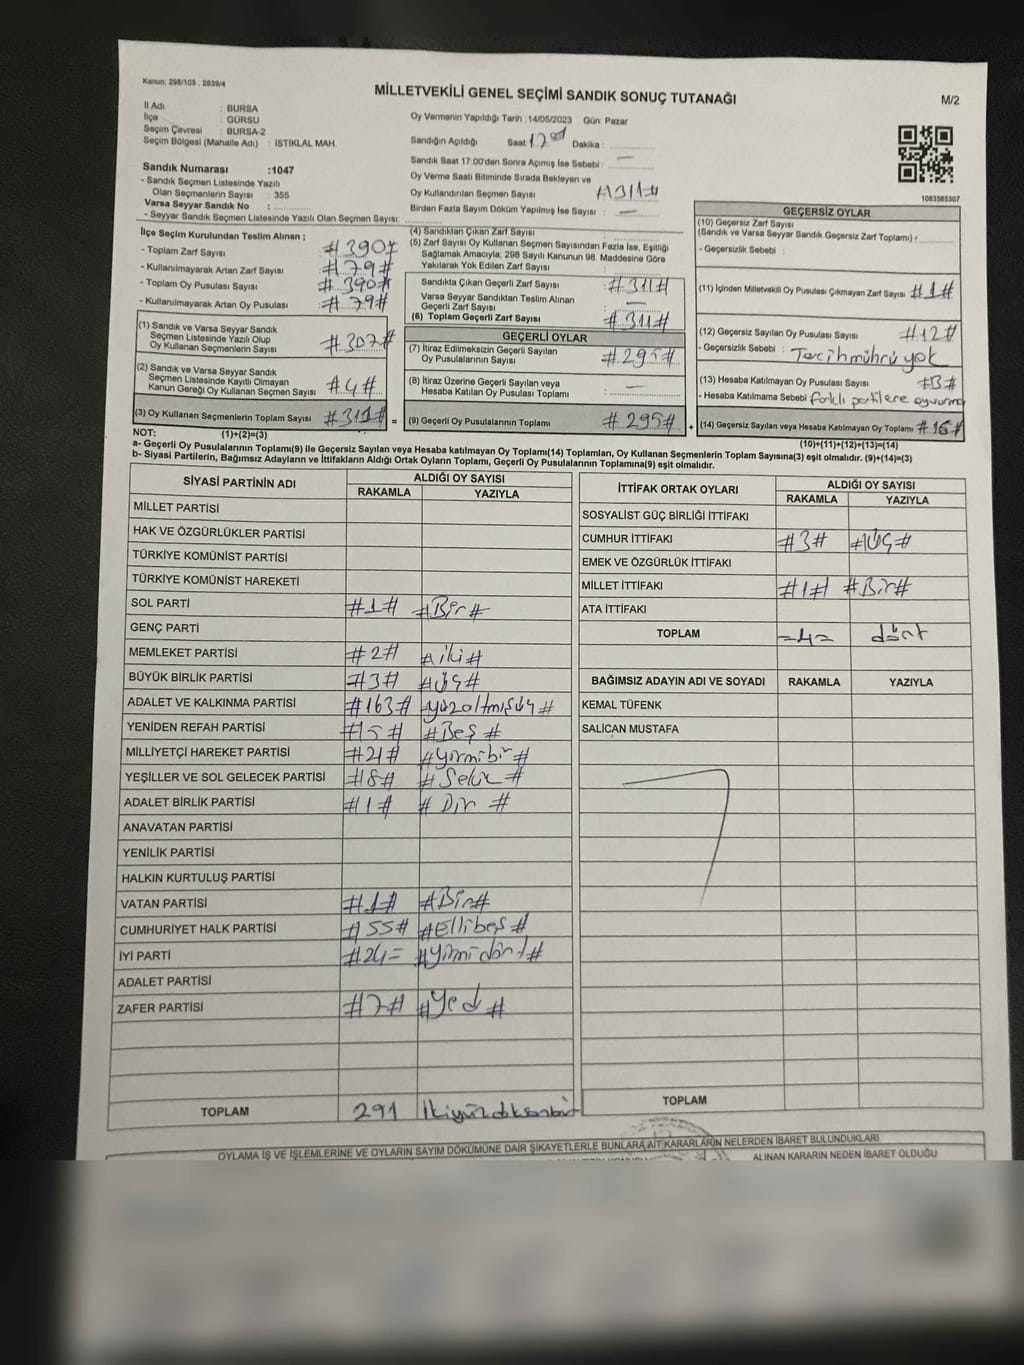 Kanun: 298/105 , 2839/4
MİLLETVEKİLİ GENEL SEÇİMİ SANDIK SONUÇ TUTANAĞI
M/2
İl Adı : BURSA
İlçe : GÜRSU
Seçim Çevresi : BURSA-2
Seçim Bölgesi (Mahalle Adı) : İSTİKLAL MAH.
Sandık Numarası :1047
- Sandık Seçmen Listesinde Yazılı
Olan Seçmenlerin Sayısı : 355
Varsa Seyyar Sandık No :
- Seyyar Sandık Seçmen Listesinde Yazılı Olan Seçmen Sayısı:
Oy Vermenin Yapıldığı Tarih :14/05/2023 Gün: Pazar
Sandığın Açıldığı Saat: 17 00 Dakika :
Sandık Saat 17:00'den Sonra Açımış İse Sebebi : —
Oy Verme Saati Bitiminde Sırada Bekleyen ve
Oy Kullandırılan Seçmen Sayısı #311#
Birden Fazla Sayım Döküm Yapılmış İse Sayısı : —
1083565307
İlçe Seçim Kurulundan Teslim Alınan ;
- Toplam Zarf Sayısı : #390#
- Kullanılmayarak Artan Zarf Sayısı : #79#
- Toplam Oy Pusulası Sayısı : #390#
- Kullanılmayarak Artan Oy Pusulası : #79#
(1) Sandık ve Varsa Seyyar Sandık
Seçmen Listesinde Yazılı Olup
Oy Kullanan Seçmenlerin Sayısı : #307#
(2) Sandık ve Varsa Seyyar Sandık
Seçmen Listesinde Kayıtlı Olmayan
Kanun Gereği Oy Kullanan Seçmen Sayısı : #4#
(3) Oy Kullanan Seçmenlerin Toplam Sayısı #311# =
(1)+(2)=(3)
(4) Sandıktan Çıkan Zarf Sayısı :
(5) Zarf Sayısı Oy Kullanan Seçmen Sayısından Fazla İse, Eşitliği
Sağlamak Amacıyla, 298 Sayılı Kanunun 98. Maddesine Göre
Yakılarak Yok Edilen Zarf Sayısı :
Sandıkta Çıkan Geçerli Zarf Sayısı : #311#
Varsa Seyyar Sandıktan Teslim Alınan
Geçerli Zarf Sayısı : —
(6) Toplam Geçerli Zarf Sayısı : #311#
GEÇERLİ OYLAR
(7) İtiraz Edilmeksizin Geçerli Sayılan
Oy Pusulalarının Sayısı : #295#
(8) İtiraz Üzerine Geçerli Sayılan veya
Hesaba Katılan Oy Pusulası Toplamı : —
(9) Geçerli Oy Pusulalarının Toplamı : #295# +
GEÇERSİZ OYLAR
(10) Geçersiz Zarf Sayısı
(Sandık ve Varsa Seyyar Sandık Geçersiz Zarf Toplamı) :
- Geçersizlik Sebebi :
(11) İçinden Milletvekili Oy Pusulası Çıkmayan Zarf Sayısı #1#
(12) Geçersiz Sayılan Oy Pusulası Sayısı : #12#
- Geçersizlik Sebebi : Tercih mührü yok
(13) Hesaba Katılmayan Oy Pusulası Sayısı : #3#
- Hesaba Katılmama Sebebi : farklı partilere
(14) Geçersiz Sayılan veya Hesaba Katılmayan Oy Toplamı #16#
(10)+(11)+(12)+(13)=(14)
NOT:
a- Geçerli Oy Pusulalarının Toplamı(9) ile Geçersiz Sayılan veya Hesaba katılmayan Oy Toplamı(14) Toplamları, Oy Kullanan Seçmenlerin Toplam Sayısına(3) eşit olmalıdır. (9)+(14)=(3)
b- Siyasi Partilerin, Bağımsız Adayların ve İttifakların Aldığı Ortak Oyların Toplamı, Geçerli Oy Pusulalarının Toplamına(9) eşit olmalıdır.
SİYASİ PARTİNİN ADI ALDIĞI OY SAYISI
RAKAMLA YAZIYLA
MİLLET PARTİSİ
HAK VE ÖZGÜRLÜKLER PARTİSİ
TÜRKİYE KOMÜNİST PARTİSİ
TÜRKİYE KOMÜNİST HAREKETİ
SOL PARTİ #1# #Bir#
GENÇ PARTİ
MEMLEKET PARTİSİ #2# #iki#
BÜYÜK BİRLİK PARTİSİ #3# #Üç#
ADALET VE KALKINMA PARTİSİ #163# #yüzaltmışüç#
YENİDEN REFAH PARTİSİ #5# #Beş#
MİLLİYETÇİ HAREKET PARTİSİ #21# #yirmibir#
YEŞİLLER VE SOL GELECEK PARTİSİ #8# #Sekiz#
ADALET BİRLİK PARTİSİ #1# #Bir#
ANAVATAN PARTİSİ
YENİLİK PARTİSİ
HALKIN KURTULUŞ PARTİSİ
VATAN PARTİSİ #1# #Bir#
CUMHURİYET HALK PARTİSİ #55# #Ellibeş#
İYİ PARTİ #24= #Yirmidört#
ADALET PARTİSİ
ZAFER PARTİSİ #7# #Yedi#
TOPLAM 291 İkiyüzdoksanbir
İTTİFAK ORTAK OYLARI ALDIĞI OY SAYISI
RAKAMLA YAZIYLA
SOSYALİST GÜÇ BİRLİĞİ İTTİFAKI
CUMHUR İTTİFAKI #3# #Üç#
EMEK VE ÖZGÜRLÜK İTTİFAKI
MİLLET İTTİFAKI #1# #Bir#
ATA İTTİFAKI
TOPLAM =4= dört
BAĞIMSIZ ADAYIN ADI VE SOYADI RAKAMLA YAZIYLA
KEMAL TÜFENK
SALİCAN MUSTAFA
TOPLAM
OYLAMA İŞ VE İŞLEMLERİNE VE OYLARIN SAYIM DÖKÜMÜNE DAİR ŞİKAYETLERLE BUNLARA AİT KARARLARIN NELERDEN İBARET BULUNDUKLARI
ALINAN KARARIN NEDEN İBARET OLDUĞU